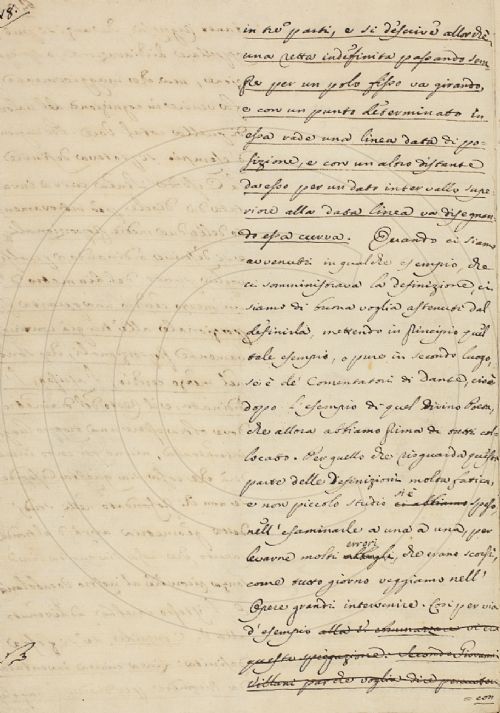 28.
in tre parti, e si descrive allorchè
una retta indefinita passando sem
pre per un polo fisso va girando,
e con un punto determinato in
essa rade una linea data di po-
sizione, e con un altro distante
da esso per un dato intervallo supe
riore alla data linea va disegnan
do essa curva. Quando ci siamo
avvenuti in qualche esempio, che
ci somministrava la definizione, ci
siamo di buona voglia astenuti dal
definirla, mettendo in principio quel
tale esempio, o pure in secondo luogo,
se è de' Comentatori di Dante, cioè
dopo l'esempio di quel Divino Poeta,
che allora abbiamo prima di tutti col
locato. Per quello che riguarda questa
parte delle Definizioni molta fatica,
e non piccolo studio ci abbiamo si è speso,
nell'esaminarle a una a una, per
levarne molti errori, che erano scorsi,
come tutto giorno veggiamo nell'
Opere grandi intervenire. Così per via
d'esempio alla
questa spiegazione: Secondo Giovanni
Villani par che voglia
= con